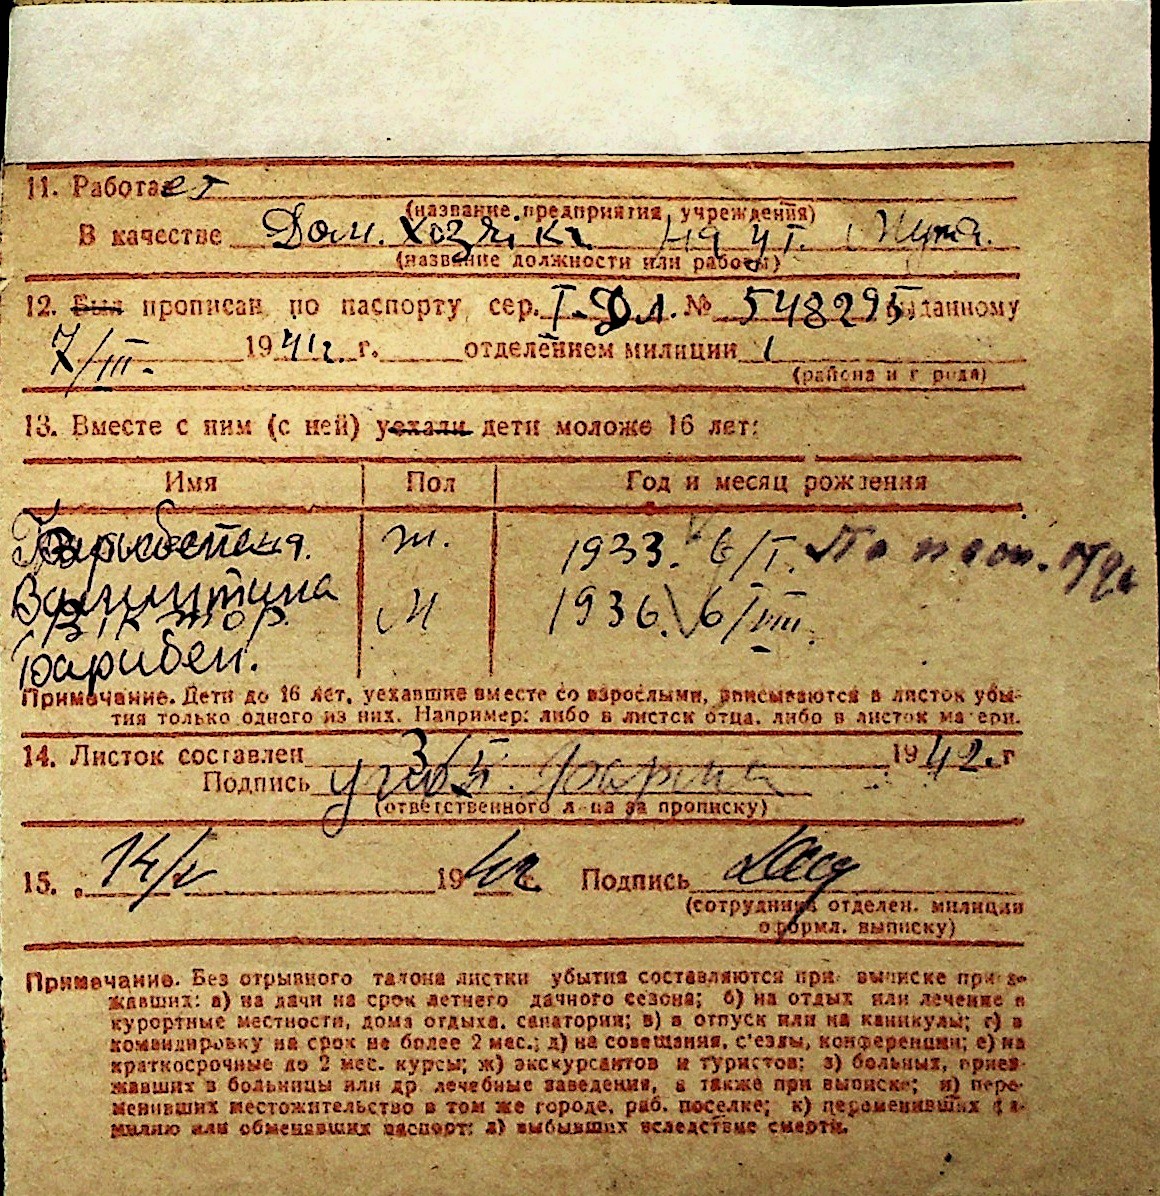 11. Работает
(название предприятия, учреждения)
В качестве Дом. хозяйка
(название должности или работы)
12. Был прописан по паспорту сер. № 548295 выданному
7/III. 1941 г. г. отделением милиции 1
(района и города)
13. Вместе с ним (с ней) уехали дети моложе 16 лет:
Имя Пол Год и месяц рождения
ж. 1933. 6/I.
Валентина
Виктор М 1936. 6/VIII.
Примечание. Дети до 16 лет, уехавшие вместе со взрослыми, вписываются в листок убы-
тия только одного из них. Например: либо в листок отца, либо в листок матери.
14. Листок составлен 1942. г
Подпись
(ответственного лица за прописку)
15. „ 14/V 1942 г. Подпись
(сотрудника отделен. милиции
оформл. выписку)
Примечание. Без отрывного талона листки убытия составляются при выписке приез-
жавших: а) на дачи на срок летнего дачного сезона; б) на отдых или лечение в
курортные местности, дома отдыха, санатории; в) в отпуск или на каникулы; г) в
командировку на срок не более 2 мес.; д) на совещания, с'езды, конференции; е) на
краткосрочные до 2 мес. курсы; ж) экскурсантов и туристов; з) больных, приез-
жавших в больницы или др. лечебные заведения, а также при выписке; и) пере-
менивших местожительство в том же городе, раб. поселке; к) переменивших фа-
милию или обменявших паспорт; л) выбывших вследствие смерти.